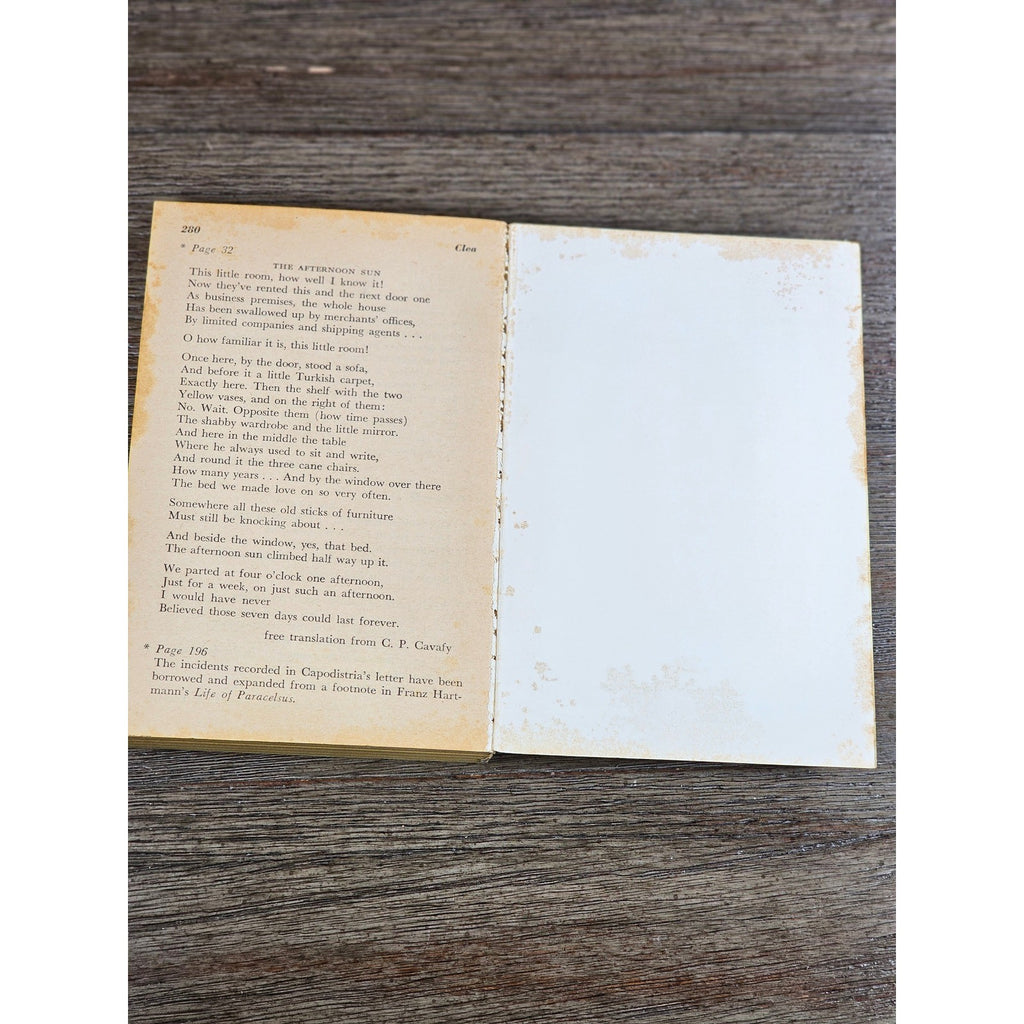 280
* Page 32 Clea
THE AFTERNOON SUN
This little room, how well I know it!
Now they've rented this and the next door one
As business premises, the whole house
Has been swallowed up by merchants' offices,
By limited companies and shipping agents . . .
O how familiar it is, this little room!
Once here, by the door, stood a sofa,
And before it a little Turkish carpet,
Exactly here. Then the shelf with the two
Yellow vases, and on the right of them:
No. Wait. Opposite them (how time passes)
The shabby wardrobe and the little mirror.
And here in the middle the table
Where he always used to sit and write,
And round it the three cane chairs.
How many years . . . And by the window over there
The bed we made love on so very often.
Somewhere all these old sticks of furniture
Must still be knocking about . . .
And beside the window, yes, that bed.
The afternoon sun climbed half way up it.
We parted at four o'clock one afternoon,
Just for a week, on just such an afternoon.
I would have never
Believed those seven days could last forever.
free translation from C. P. Cavafy
* Page 196
The incidents recorded in Capodistria's letter have been
borrowed and expanded from a footnote in Franz Hart-
mann's Life of Paracelsus.